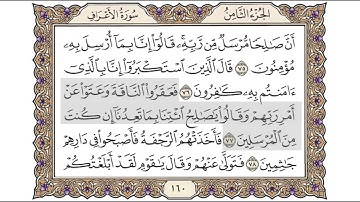 الجزء الثامن
سورة الأعراف
أَنَّ صَٰلِحًا مُّرْسَلٌ مِّن رَّبِّهِۦ ۚ قَالُوٓا۟ إِنَّا بِمَآ أُرْسِلَ بِهِۦ
مُؤْمِنُونَ ٧٥ قَالَ ٱلَّذِينَ ٱسْتَكْبَرُوٓا۟ إِنَّا بِٱلَّذِىٓ
ءَامَنتُم بِهِۦ كَٰفِرُونَ ٧٦ فَعَقَرُوا۟ ٱلنَّاقَةَ وَعَتَوْا۟ عَنْ
أَمْرِ رَبِّهِمْ وَقَالُوا۟ يَٰصَٰلِحُ ٱئْتِنَا بِمَا تَعِدُنَآ إِن كُنتَ
مِنَ ٱلْمُرْسَلِينَ ٧٧ فَأَخَذَتْهُمُ ٱلرَّجْفَةُ فَأَصْبَحُوا۟ فِى دَارِهِمْ
جَٰثِمِينَ ٧٨ فَتَوَلَّىٰ عَنْهُمْ وَقَالَ يَٰقَوْمِ لَقَدْ أَبْلَغْتُكُمْ
١٦٠